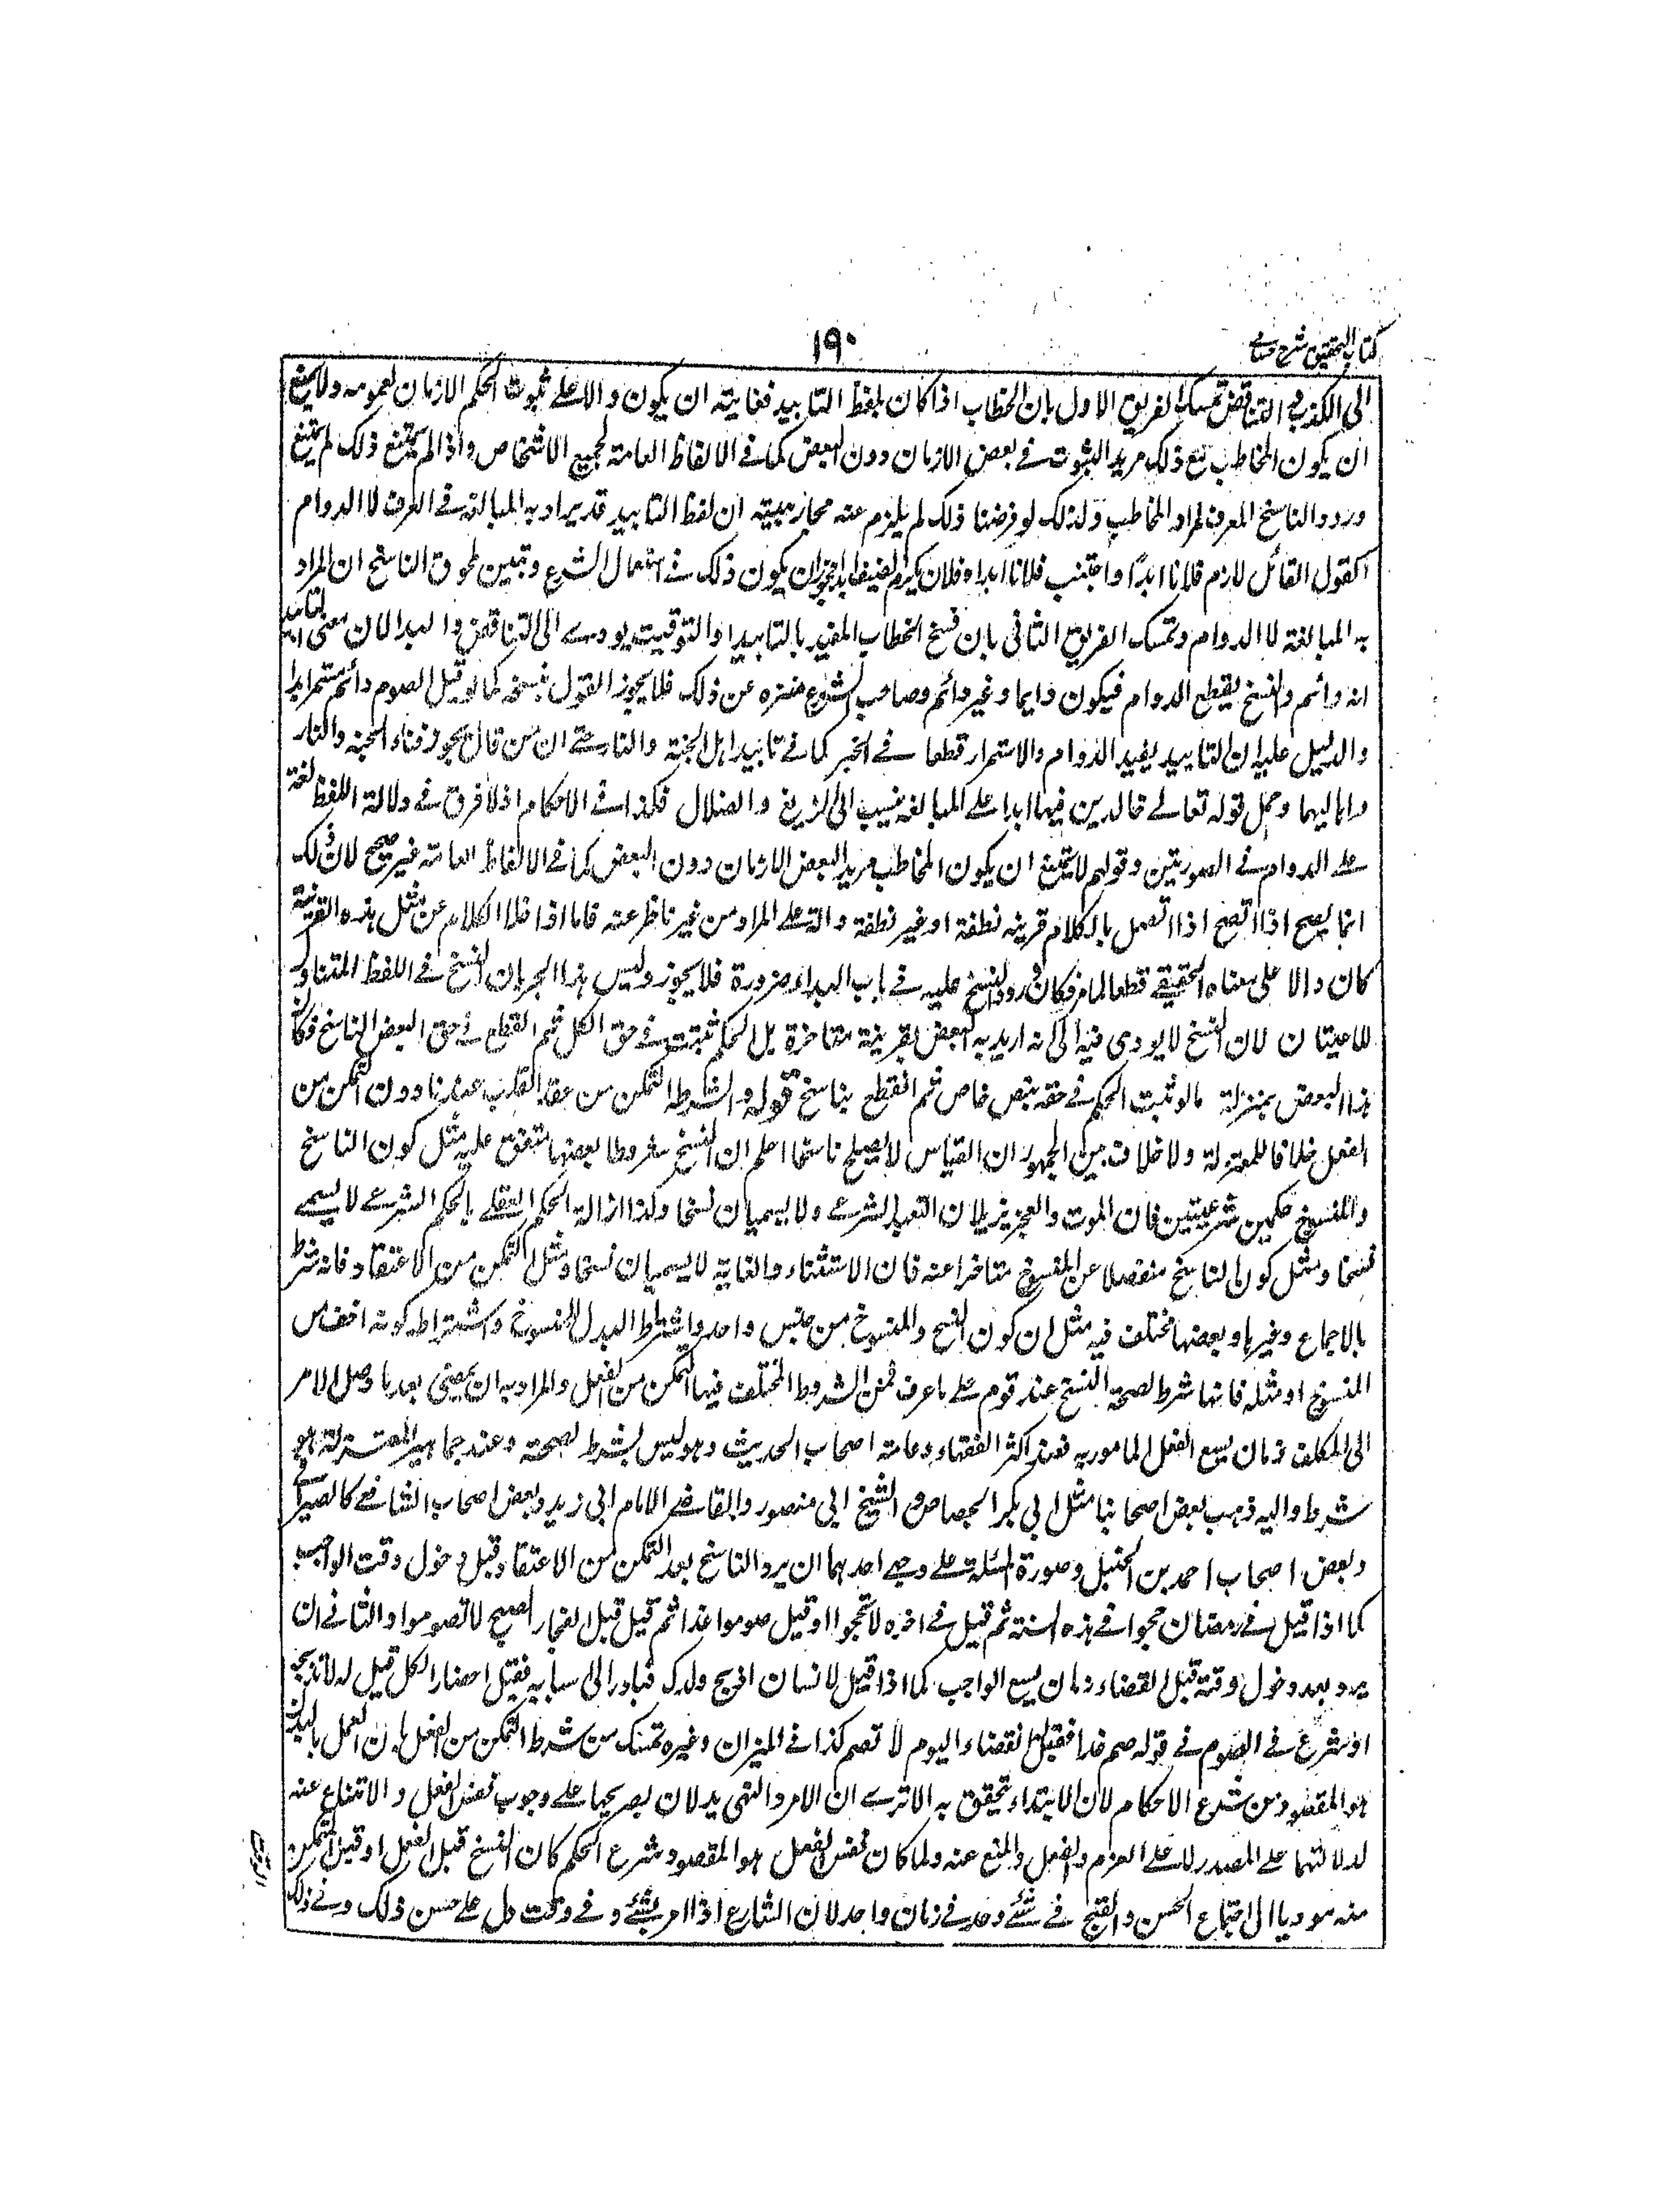 كتاب التحقيق شرح حسامى
١٩٠
الى الكذب و التناقض تمسك الفريق الاول بان الخطاب اذا كان بلفظ التابيد فغايته ان يكون دالا على ثبوت الحكم الازمان لعمومه ولا يمتنع
ان يكون المخاطب مع ذلك مريدا لثبوت فى بعض الازمان دون البعض كما فى الالفاظ العامة لجميع الاشخاص واذا لم يمتنع ذلك لم يمتنع
ورود الناسخ المعرف لمراد المخاطب ولذلك لو فرضنا ذلك لم يلزم عنه محال يبينه ان لفظ التابيد قد يراد به المبالغة فى العرف لا الدوام
كقول القائل لازم فلانا ابدًا واجتنب فلانا ابدا وفلان يكرم الضيف ابدا فيجوز ان يكون ذلك فى استعمال الشرع وتبين لحوق الناسخ ان المراد
به المبالغة لا الدوام وتمسك الفريق الثانى بان نسخ الخطاب المقيد بالتابيد او التوقيت يودى الى التناقض والبدا لان معنى التابيد
انه دائم والنسخ يقطع الدوام فيكون دايما وغير دائم وصاحب الشرع منزه عن ذلك فلا يجوز القول بنسخه كما لو قيل الصوم دائم مستمر ابدا
والدليل عليه ان التابيد يفيد الدوام والاستمرار قطعا فى الخبر كما فى تابيد اهل الجنة والنار حتى ان من قال بجواز فناء الجنة والنار
واهاليهما وحمل قوله تعالى خالدين فيها ابدا على المبالغة ينسب الى الزيغ والضلال فكذا فى الاحكام اذ لا فرق فى دلالة اللفظ لغة
على الدوام فى الصورتين وقولهم لا يمتنع ان يكون المخاطب مريدا لبعض الازمان دون البعض كما فى الالفاظ العامة غير صحيح لان ذلك
انما يصح اذا اتصل بالكلام قرينة نطقية او غير نطقية دالة على المراد من غير تاخر عنه فاما اذا خلا الكلام عن مثل هذه القرينة
كان دالا على معناه الحقيقى قطعا لما مر فكان ورود النسخ عليه فى باب البداء ضرورة فلا يجوز وليس هذا الجريان النسخ فى اللفظ المتناول
للاعيان لان النسخ لا يودى فيه الى انه اريد به البعض بقرينة متاخرة بل الحكم ثبت فى حق الكل ثم انقطع فى حق البعض الناسخ فكان
هذا البعض بمنزلة ما لو ثبت الحكم فى حقه بنص خاص ثم انقطع بناسخ قوله والشرط التمكن من عقد القلب عندنا دون التمكن من
الفعل خلافا للمعتزلة ولا خلاف بين الجمهور ان القياس لا يصلح ناسخا اعلم ان للنسخ شروطا بعضها متفق عليه مثل كون الناسخ
والمنسوخ حكمين شرعيين فان الموت والعجز يزيلان التعبد الشرعى ولا يسميان نسخا وكذا ازالة الحكم العقلى بالحكم الشرعى لا يسمى
نسخا ومثل كون الناسخ منفصلا عن المنسوخ متاخرا عنه فان الاستثناء والغاية لا يسميان نسخا ومثل التمكن من الاعتقاد فانه شرط
بالاجماع وغيرها وبعضها مختلف فيه مثل ان كون الناسخ والمنسوخ من جنس واحد واشتراط البدل للمنسوخ واشتراط كونه اخف من
المنسوخ او مثله فانها شرط لصحة النسخ عند قوم على ما عرف فمن الشروط المختلف فيها التمكن من الفعل والمراد به ان يمضى بعد ما وصل الامر
الى المكلف زمان يسع الفعل المامور به فعند اكثر الفقهاء وعامة اصحاب الحديث وهو ليس بشرط لصحة وعند جماهير المعتزلة هو
شرط واليه ذهب بعض اصحابنا مثل ابى بكر الجصاص والشيخ ابى منصور والقاضى الامام ابى زيد وبعض اصحاب الشافعى كالصيرافى
وبعض اصحاب احمد بن الحنبل وصورة المسئلة على وجهين احدهما ان يرد الناسخ بعد التمكن من الاعتقاد وقبل دخول وقت الواجب
كما اذا قيل فى رمضان حجوا فى هذه السنة ثم قيل فى اخره لا تحجوا او قيل صوموا غدا ثم قيل قبل انفجار الصبح لا تصوموا والثانى ان
يرد بعد دخول وقته قبل انقضاء زمان يسع الواجب كما اذا قيل لانسان اذبح ولدك فبادر الى اسبابه فقبل احضار الكل قيل له لا تذبحه
او شرع فى الصوم فى قوله صم غدا فقيل قبل انقضاء اليوم لا تصم كذا فى الميزان وغيره تمسك من شرط التمكن من الفعل بان العمل بالبدن
هو المقصود من شرع الاحكام لان الابتداء يتحقق به الا ترى ان الامر والنهى يدلان بصريحهما على وجوب نفس الفعل و الامتناع عنه
لدلالتهما على المصدر لا على العزم والفعل والمنع عنه ولما كان نفس الفعل هو المقصود شرع الحكم كان النسخ قبل الفعل او قبل التمكن
منه موديا الى اجتماع الحسن والقبح فى شئ واحد فى زمان واحد لان الشارع اذا امر بشئ وفى وقت دل على حسن ذلك وفى ذلك